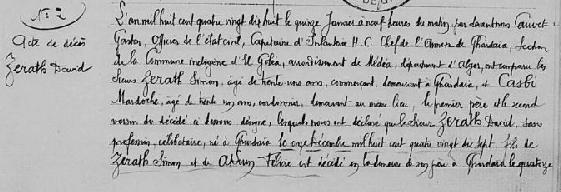 N: 2
Acte de décès
Zerath David
L'an mil huit cent quatre vingt dix huit le quinze Janvier à neuf heures du matin, par devant nous Cauvet
Gaston, Officier de l'état civil, Capitaine d'Infanterie H.C. Chef de l'Annexe de Ghardaïa, Section
de la Commune indigène d', arrondissement de Médéa, département d'Alger, ont comparu les
sieurs Zerath Simon, âgé de trente uns ans, commerçant, demeurant à Ghardaïa, et Casbi
Mardochée, agé de trente ans, cordonnier, demeurant au même lieu, le premier père et le second
voisin du décédé ci dessous désigné, lesquels nous ont déclaré que le sieur Zerath David, sans
profession, célibataire, né à Ghardaïa le onze Décembre mil huit cent quatre vingt dix sept fils de
Zerath Simon et de est décédé en la demeure de son père à Ghardaïa le quatorze